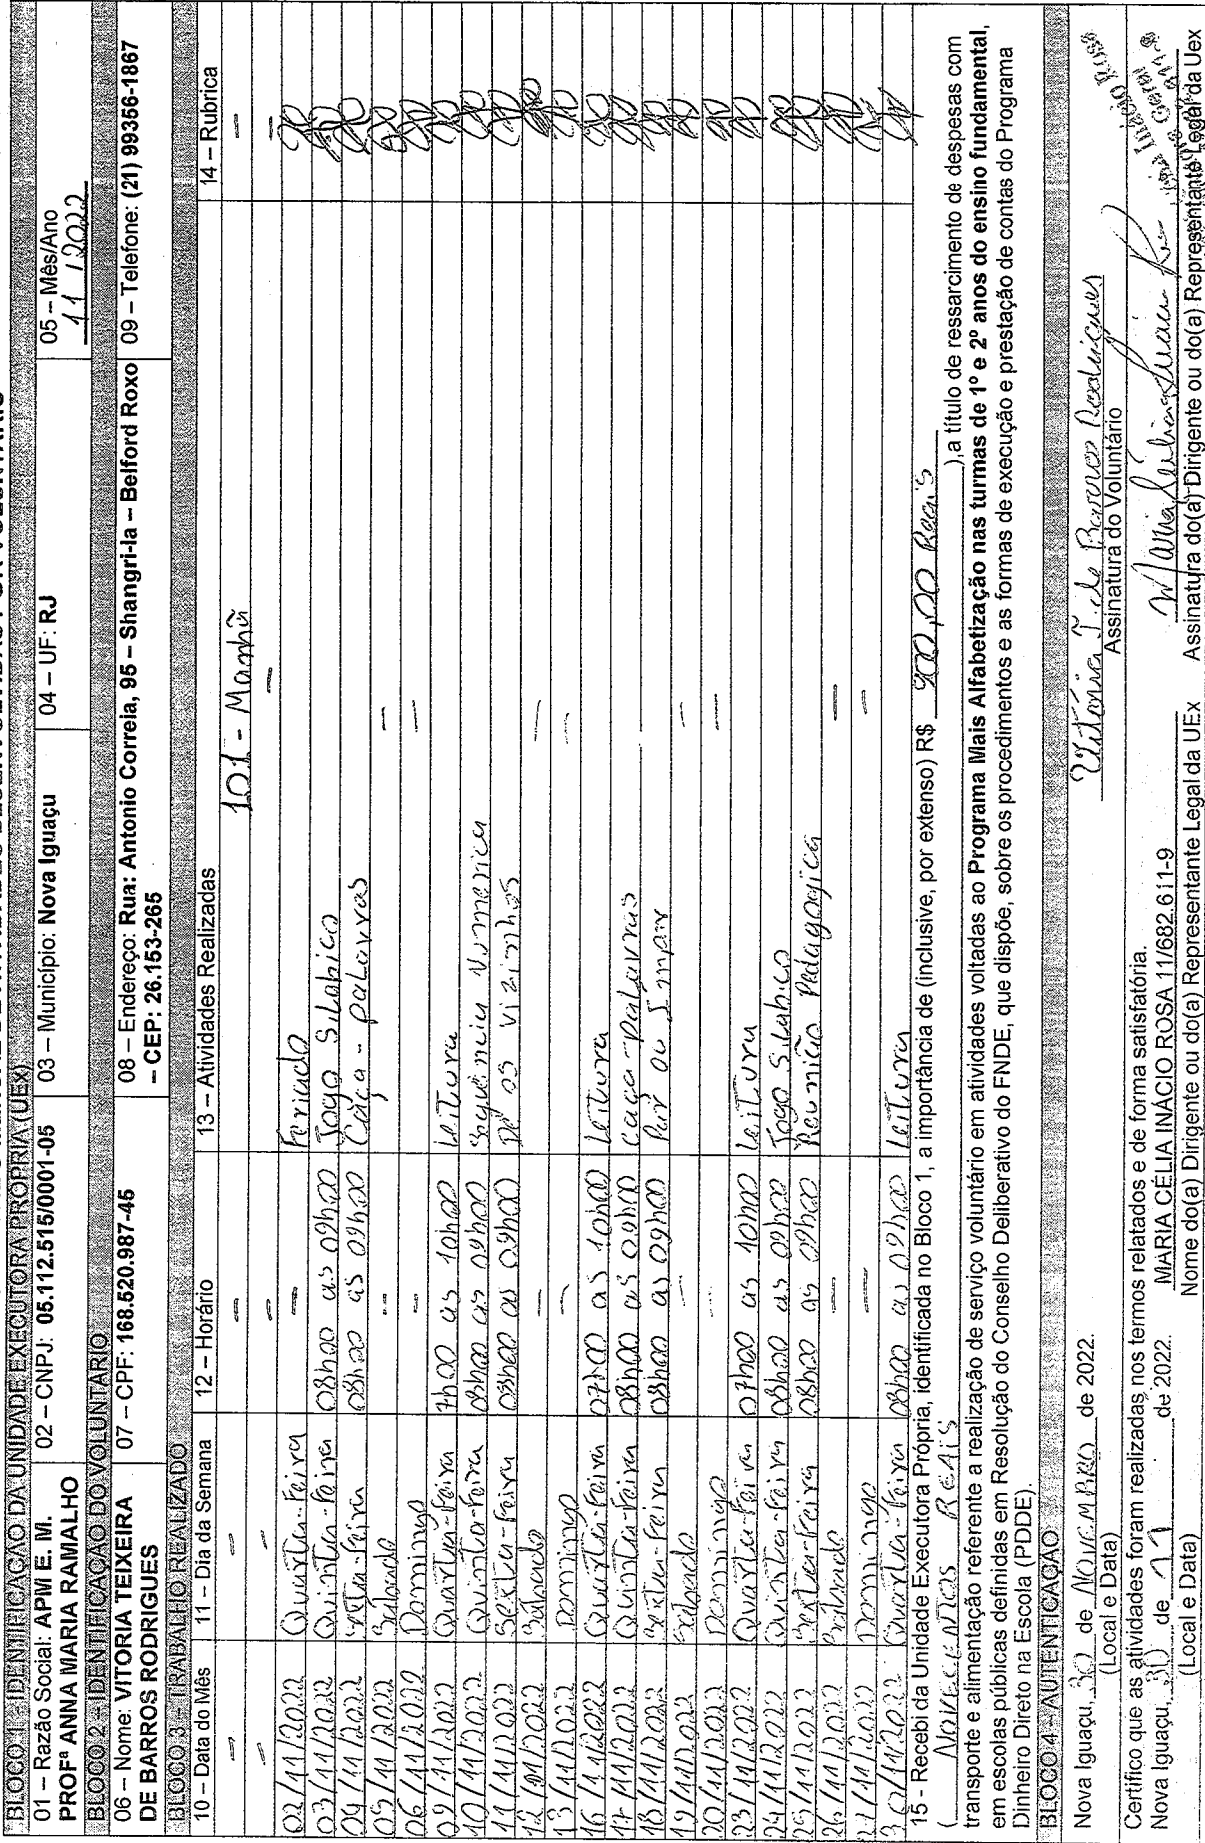 BLOCO 1 – IDENTIFICAÇÃO DA UNIDADE EXECUTORA PRÓPRIA (UEX)
01 – Razão Social: APM E. M. PROFª ANNA MARIA RAMALHO
02 – CNPJ: 05.112.515/0001-05
03 – Município: Nova Iguaçu
04 – UF: RJ
05 – Mês/Ano 11/2022
BLOCO 2 – IDENTIFICAÇÃO DO VOLUNTÁRIO
06 – Nome: VITORIA TEIXEIRA DE BARROS RODRIGUES
07 – CPF: 168.520.987-45
08 – Endereço: Rua: Antonio Correia, 95 – Shangri-la – Belford Roxo – CEP: 26.153-265
09 – Telefone: (21) 99356-1867
BLOCO 3 – TRABALHO REALIZADO
10 – Data do Mês 11 – Dia da Semana 12 – Horário 13 – Atividades Realizadas 14 – Rubrica
– – – 101 - Manhã –
– – – – –
02/11/2022 Quarta-Feira – Feriado
03/11/2022 Quinta-Feira 08h00 as 09h00 Jogo Silabico
04/11/2022 Sexta-Feira 08h00 as 09h00 Caça - palavras
05/11/2022 Sabado – –
06/11/2022 Domingo – –
09/11/2022 Quarta-Feira 7h00 as 10h00 Leitura
10/11/2022 Quinta-Feira 08h00 as 09h00 Sequência Numerica
11/11/2022 Sexta-Feira 08h00 as 09h00 os vizinhos
12/11/2022 Sabado – –
13/11/2022 Domingo – –
16/11/2022 Quarta-Feira 07h00 as 10h00 Leitura
17/11/2022 Quinta-Feira 08h00 as 09h00 Caça-palavras
18/11/2022 Sexta-Feira 08h00 as 09h00 Par ou Impar
19/11/2022 Sabado – –
20/11/2022 Domingo – –
23/11/2022 Quarta-Feira 07h00 as 10h00 Leitura
24/11/2022 Quinta-Feira 08h00 as 09h00 Jogo Silabico
25/11/2022 Sexta-Feira 08h00 as 09h00 Reunião Pedagogica
26/11/2022 Sabado – –
27/11/2022 Domingo – –
30/11/2022 Quarta-Feira 08h00 as 09h00 Leitura
15 - Recebi da Unidade Executora Própria, identificada no Bloco 1, a importância de (inclusive, por extenso) R$ 900,00 Reais
( Novecentos REAIS ),a título de ressarcimento de despesas com
transporte e alimentação referente a realização de serviço voluntário em atividades voltadas ao Programa Mais Alfabetização nas turmas de 1º e 2º anos do ensino fundamental,
em escolas públicas definidas em Resolução do Conselho Deliberativo do FNDE, que dispõe, sobre os procedimentos e as formas de execução e prestação de contas do Programa
Dinheiro Direto na Escola (PDDE).
BLOCO 4 – AUTENTICAÇÃO
Nova Iguaçu, 30 de Novembro de 2022. Vitória T. de Barros Rodrigues
(Local e Data) Assinatura do Voluntário
Certifico que as atividades foram realizadas, nos termos relatados e de forma satisfatória.
Nova Iguaçu, 30 de 11 de 2022. MARIA CÉLIA INÁCIO ROSA 11/682.611-9
(Local e Data) Nome do(a) Dirigente ou do(a) Representante Legal da UEx Assinatura do(a) Dirigente ou do(a) Representante Legal da Uex